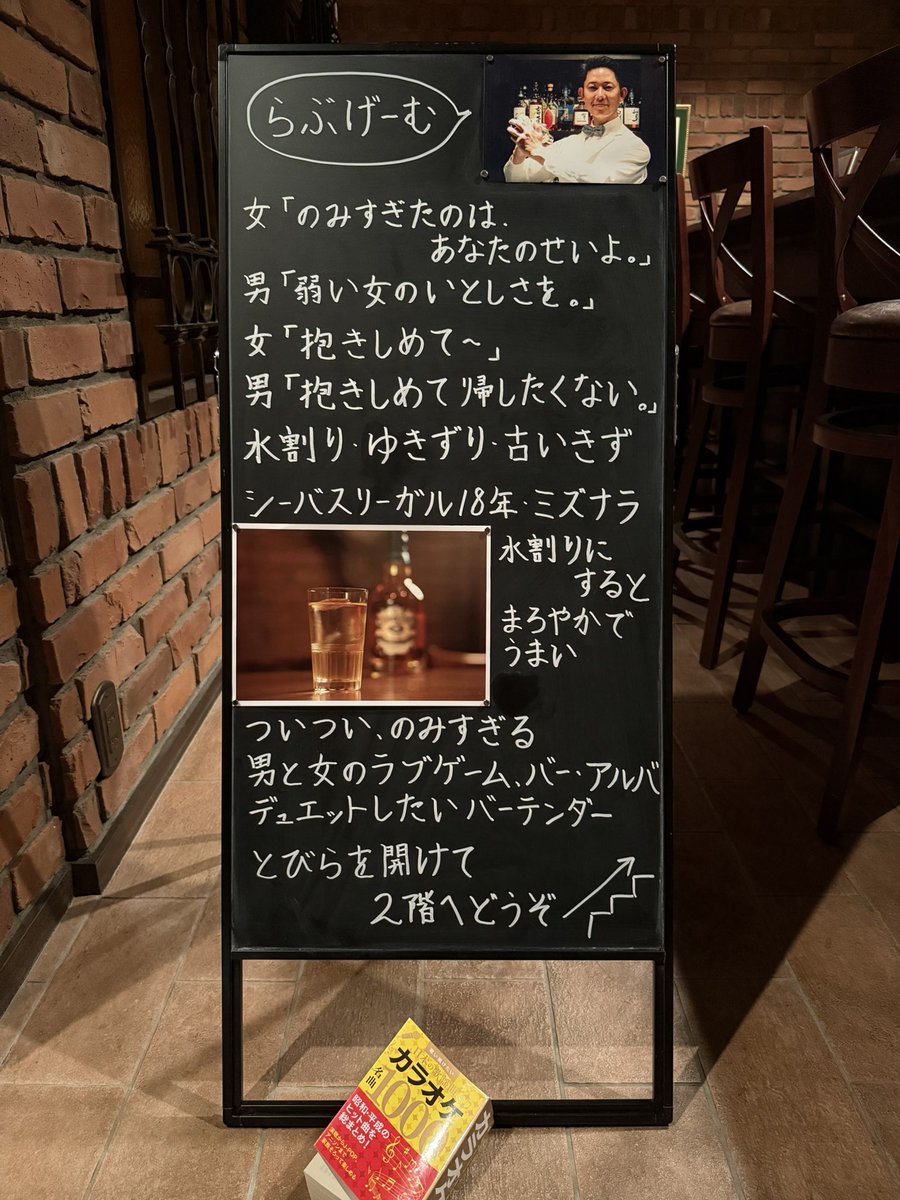 らぶげーむ
女「のみすぎたのは、
あなたのせいよ。」
男「弱い女のいとしさを。」
女「抱きしめて〜」
男「抱きしめて帰したくない。」
水割り・ゆきずり・古いきず
シーバスリーガル18年・ミズナラ
水割りに
すると
まろやかで
うまい
ついつい、のみすぎる
男と女のラブゲーム、バー・アルバ
デュエットしたいバーテンダー
とびらを開けて
2階へどうぞ
カラオケ
名曲
1000
昭和・平成の
ヒット曲を
総まとめ!